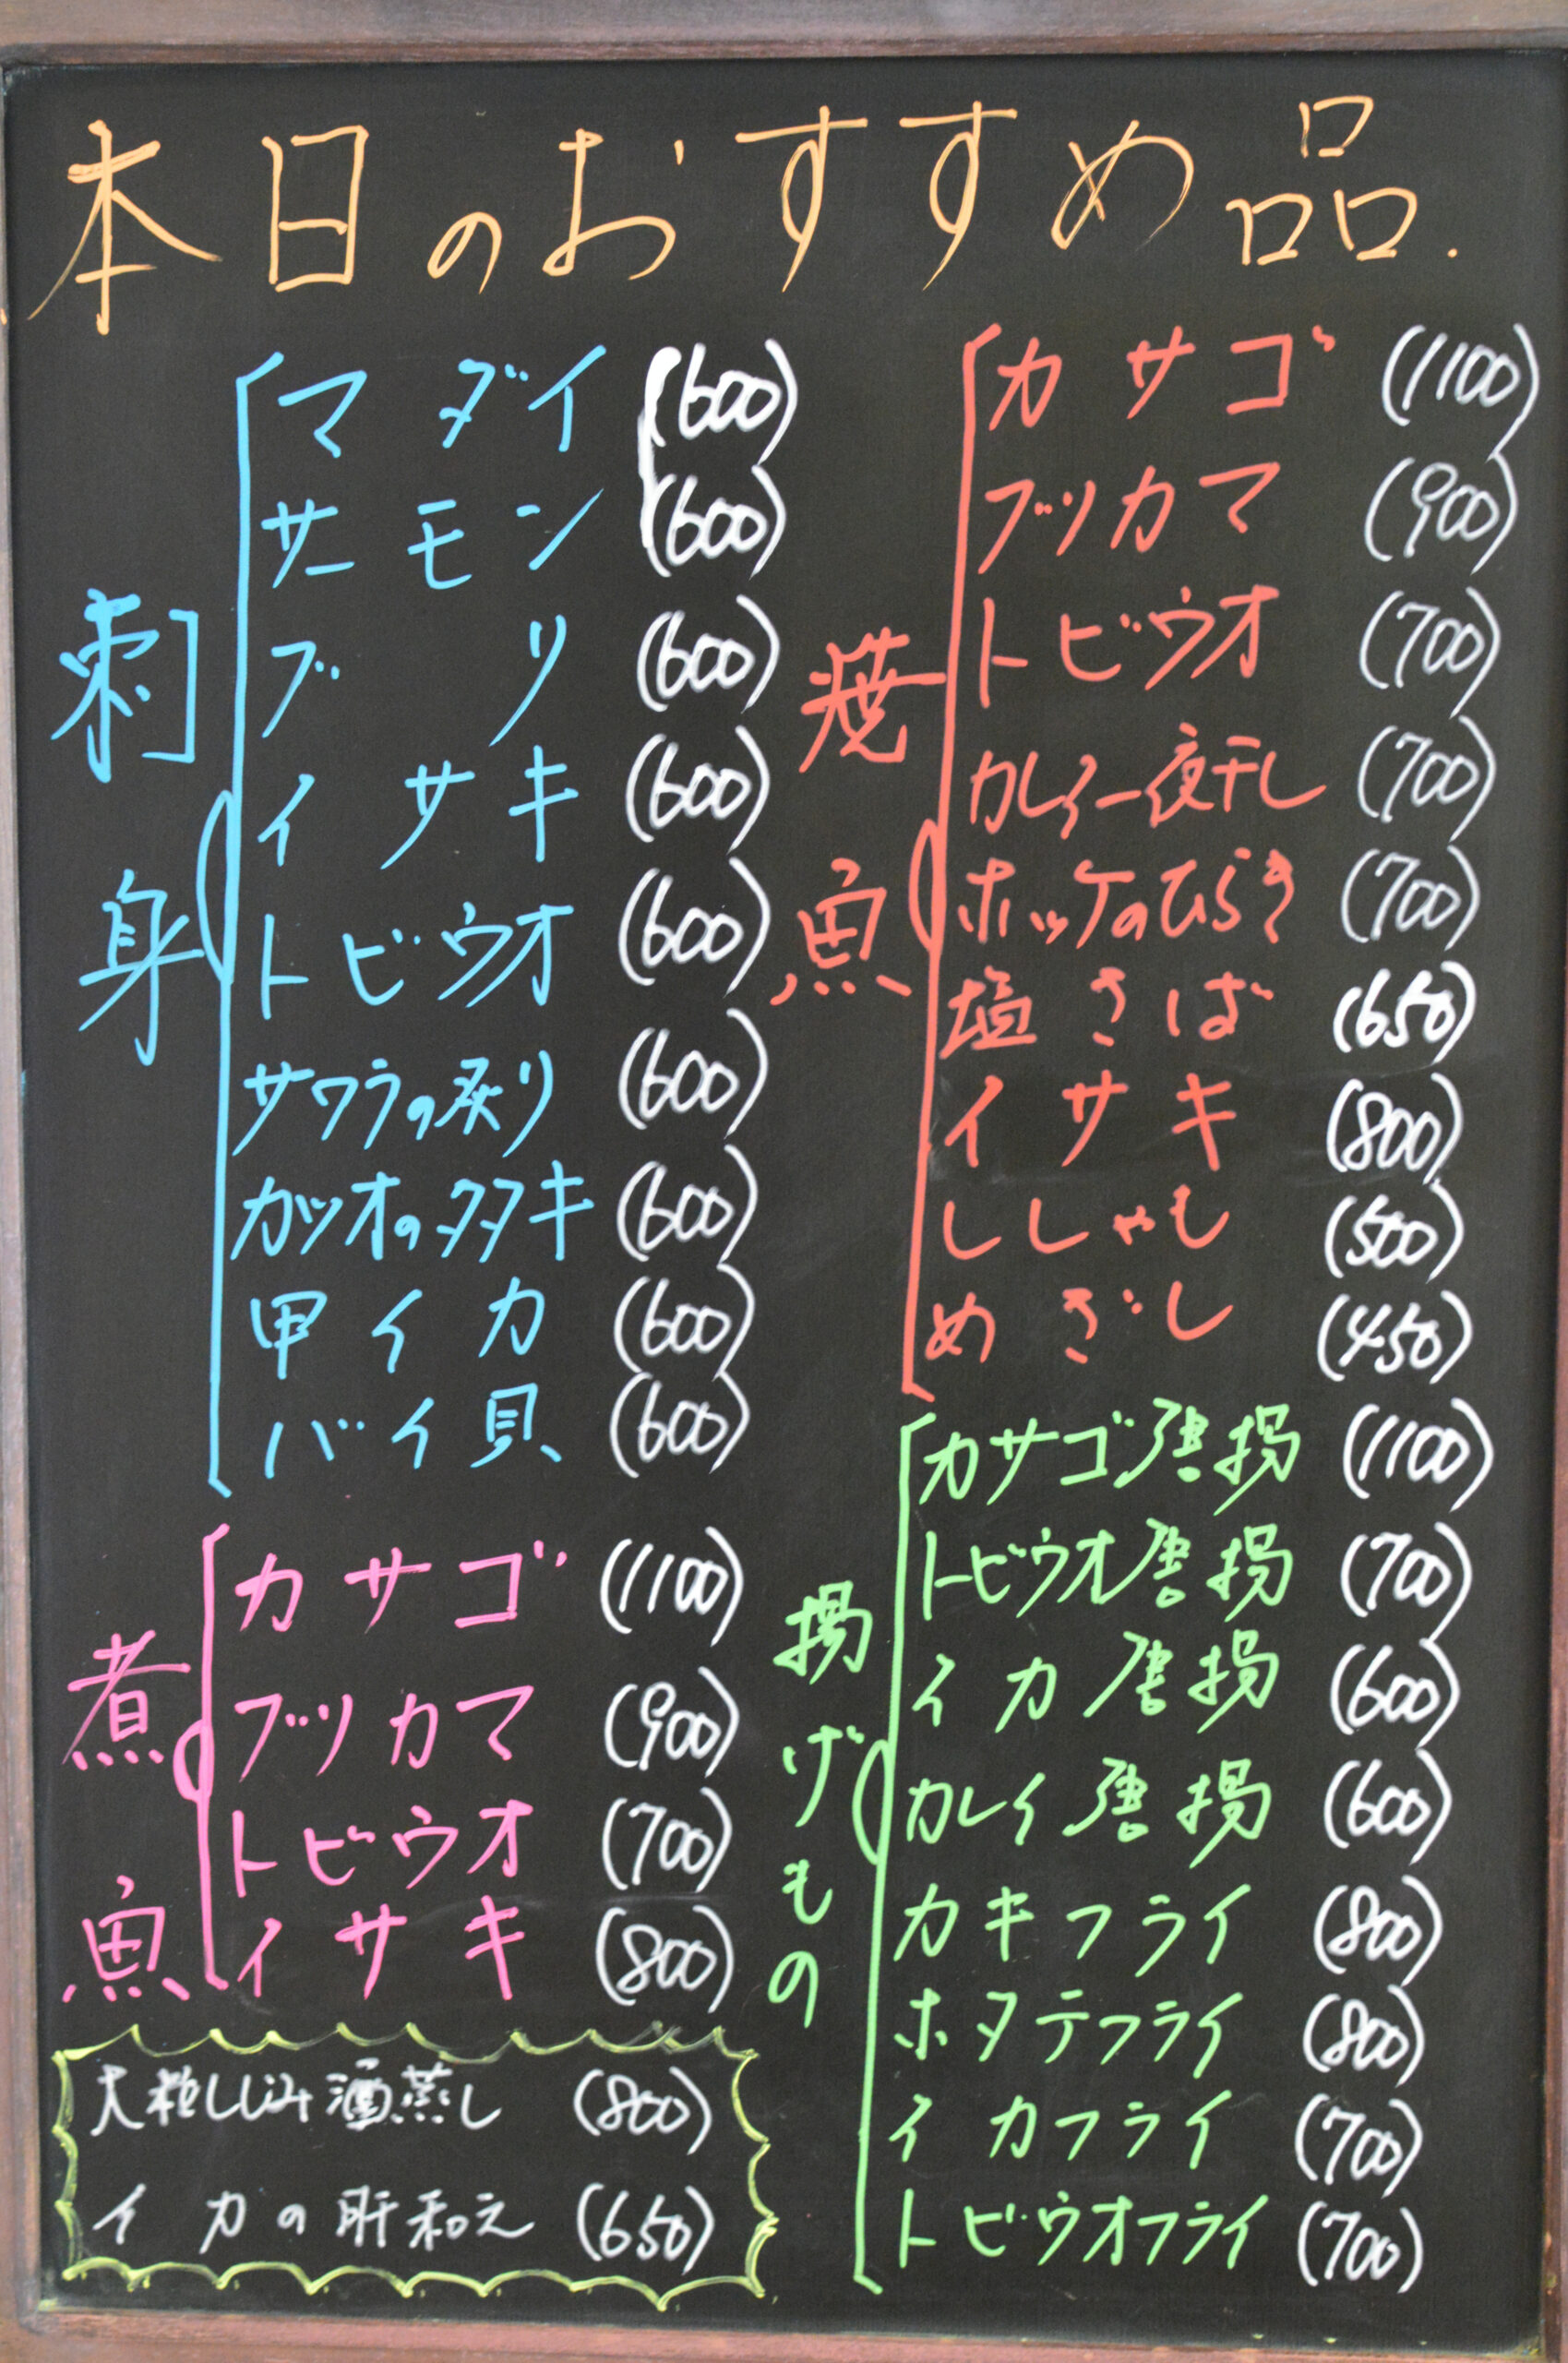 本日のおすすめ品.
刺身
マダイ (600)
サーモン (600)
ブリ (600)
イサキ (600)
トビウオ (600)
サワラの炙り (600)
カツオのタタキ (600)
甲イカ (600)
バイ貝 (600)
煮魚
カサゴ (1100)
ブツカマ (900)
トビウオ (700)
イサキ (800)
大粒しじみ酒蒸し (800)
イカの肝和え (650)
焼魚
カサゴ (1100)
ブツカマ (900)
トビウオ (700)
カレイ一夜干し (700)
ホッケのひらき (700)
塩さば (650)
イサキ (800)
ししゃも (500)
めざし (450)
揚げもの
カサゴ唐揚 (1100)
トビウオ唐揚 (700)
イカ唐揚 (600)
カレイ唐揚 (600)
カキフライ (800)
ホタテフライ (800)
イカフライ (700)
トビウオフライ (700)